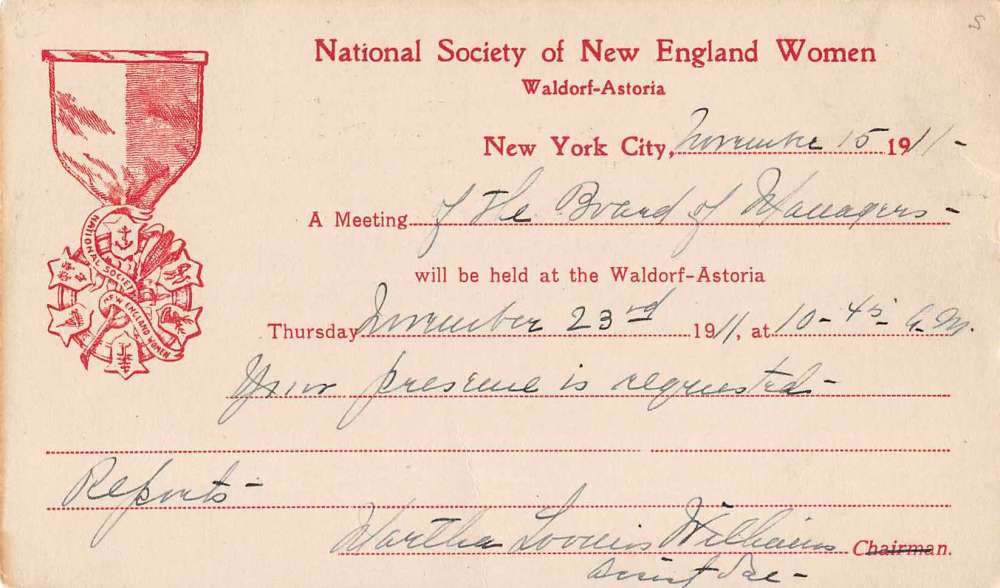 National Society of New England Women
Waldorf-Astoria
New York City, November 15 1911-
A Meeting of the Board of Managers-
will be held at the Waldorf-Astoria
Thursday November 23rd 1911, at 10-45 A.M.
Your presence is requested-
Reports-
Martha Williams Chairman.
Asist Sec-
NATIONAL SOCIETY
NEW ENGLAND WOMEN
S